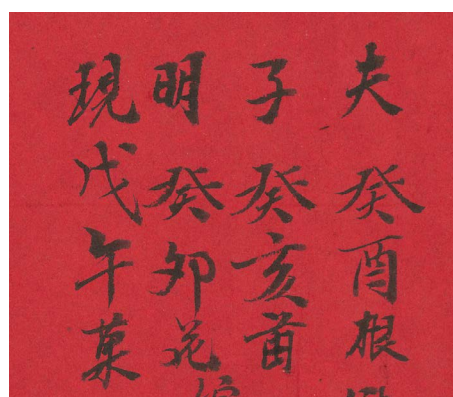 夫癸酉根
子癸亥苗
明癸卯花
現戊午菓